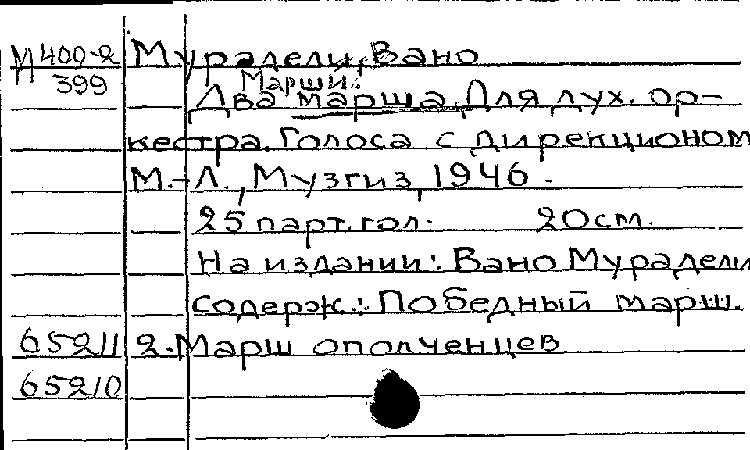 М400-2 Мурадели, Вано
399 Марши:
Два марша. Для дух. ор-
кестра. Голоса с дирекционом
М.-Л., Музгиз, 1946.
25 парт. гол. 20 см.
На издании: Вано Мурадели
содерж.: Победный марш.
65211 2. Марш ополченцев
65210